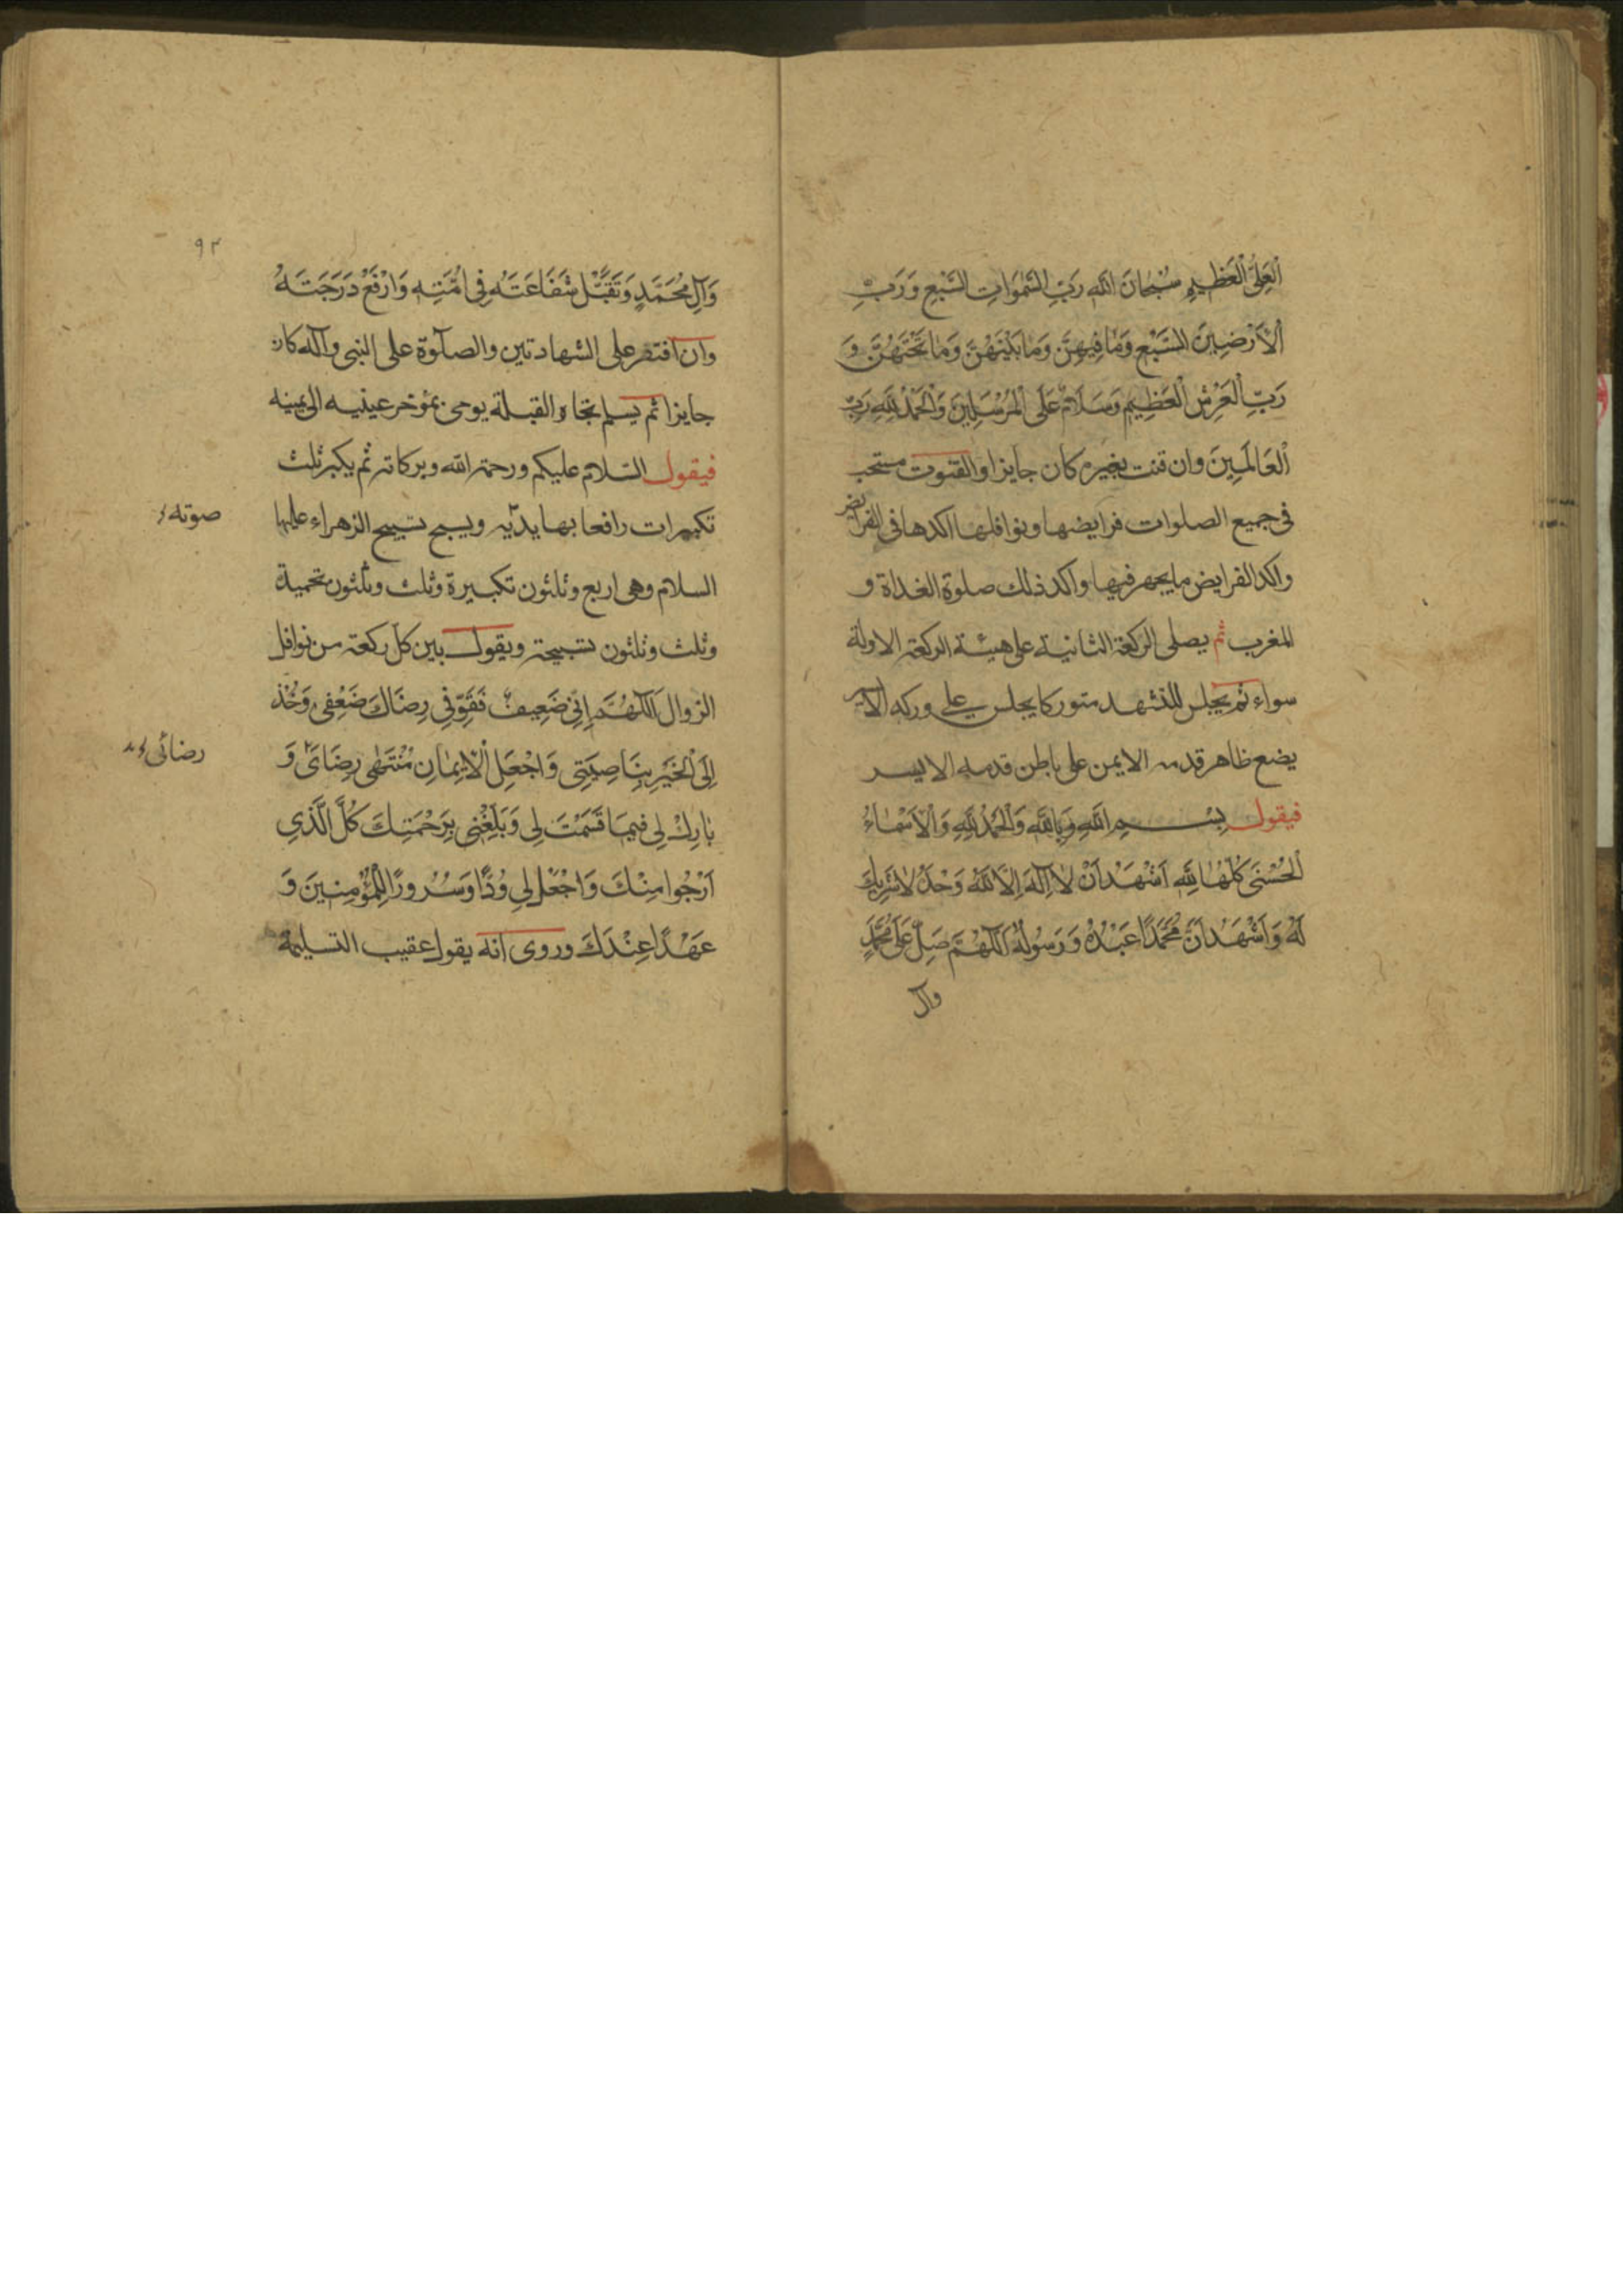 اَلْعَلِيِّ الْعَظِيمِ سُبْحَانَ اللهِ رَبِّ السَّمٰوَاتِ السَّبْعِ وَرَبِّ
الْاَرَضِينَ السَّبْعِ وَمَا فِيهِنَّ وَمَا بَيْنَهُنَّ وَمَا تَحْتَهُنَّ وَ
رَبِّ الْعَرْشِ الْعَظِيمِ وَسَلَامٌ عَلَى الْمُرْسَلِينَ وَالْحَمْدُ لِلّٰهِ رَبِّ
الْعَالَمِينَ وان قنت بغيره كان جايزا والقنوت مستحب
فى جميع الصلوات فرايضها ونوافلها اكدها فى الفرايض
واكد الفرايض ما يجهر فيها واكد ذلك صلوة الغداة و
المغرب ثم يصلى الركعة الثانية على هيئة الركعة الاولة
سواء ثم يجلس للتشهد متوركا يجلس على وركه الايسر
يضع ظاهر قدمه الايمن على باطن قدمه الايسر
فيقول بِسْمِ اللهِ وَبِاللهِ وَالْحَمْدُ لِلّٰهِ وَالْاَسْمَاءُ
الْحُسْنَى كُلُّهَا لِلّٰهِ اَشْهَدُ اَنْ لَا اِلٰهَ اِلَّا اللهُ وَحْدَهُ لَا شَرِيكَ
لَهُ وَاَشْهَدُ اَنَّ مُحَمَّدًا عَبْدُهُ وَرَسُولُهُ اَللّٰهُمَّ صَلِّ عَلَى مُحَمَّدٍ
وآل
٩٣
وَآلِ مُحَمَّدٍ وَتَقَبَّلْ شَفَاعَتَهُ فِى اُمَّتِهِ وَارْفَعْ دَرَجَتَهُ
وان اقتصر على الشهادتين والصلوة على النبى وآله كان
جايزا ثم يسلم تجاه القبلة يومى بمؤخر عينيه الى يمينه
فيقول السلام عليكم ورحمة الله وبركاته ثم يكبر ثلث
تكبيرات رافعا بها يديه ويسبح تسبيح الزهراء عليها
صوته
السلام وهى اربع وثلثون تكبيرة وثلث وثلثون تحميدة
وثلث وثلثون تسبيحة ويقول بين كل ركعة من نوافل
الزوال اَللّٰهُمَّ اِنِّى ضَعِيفٌ فَقَوِّ فِى رِضَاكَ ضَعْفِى وَخُذْ
اِلَى الْخَيْرِ بِنَاصِيَتِى وَاجْعَلِ الْاِيمَانَ مُنْتَهٰى رِضَاىَ وَ
رضائى
بَارِكْ لِى فِيمَا قَسَمْتَ لِى وَبَلِّغْنِى بِرَحْمَتِكَ كُلَّ الَّذِى
اَرْجُوا مِنْكَ وَاجْعَلْ لِى وُدًّا وَسُرُورًا لِلْمُؤْمِنِينَ وَ
عَهْدًا عِنْدَكَ وروى انه يقول عقيب التسليمة